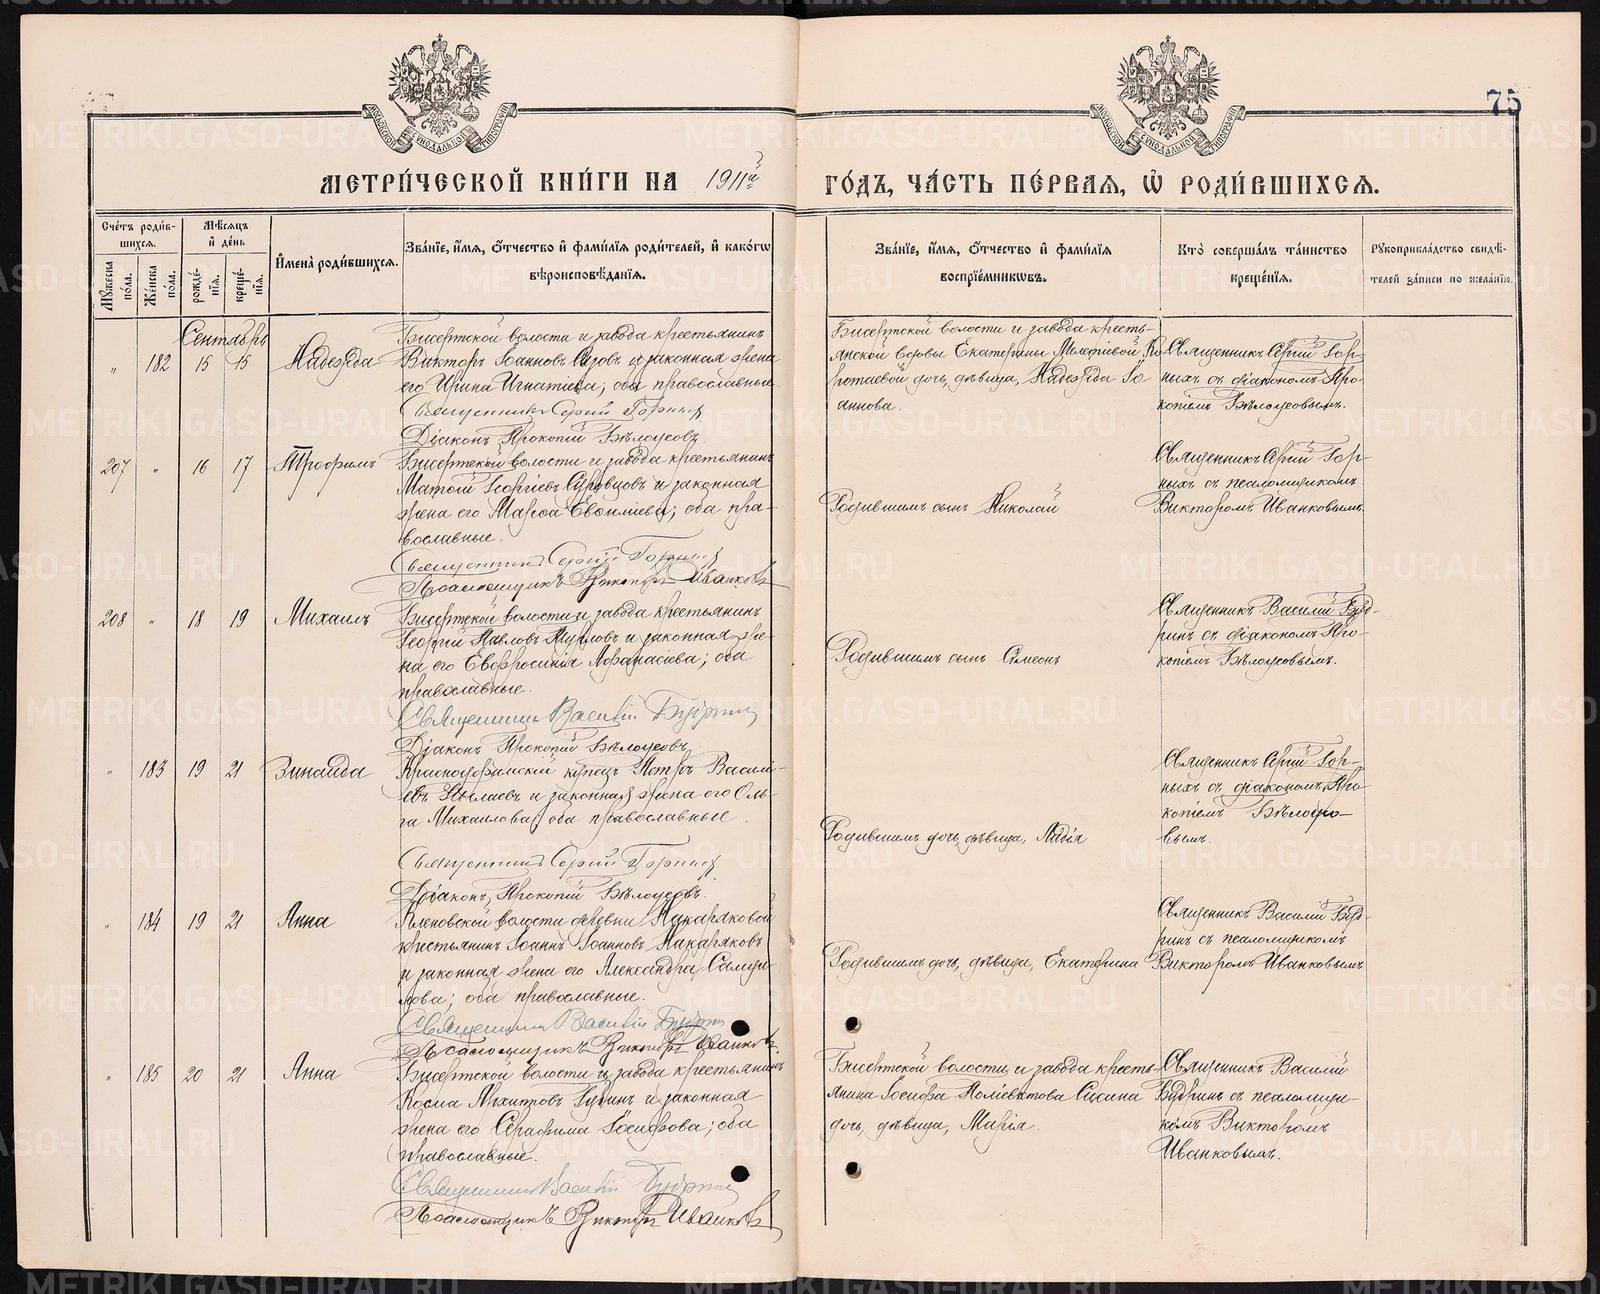 75
МОСКОВСКОЙ СѴНОДАЛЬНОЙ ТИПОГРАФІИ
МОСКОВСКОЙ СѴНОДАЛЬНОЙ ТИПОГРАФІИ
МЕТРИ́ЧЕСКОЙ КНИ́ГИ НА 1911й ГО́ДЪ, ЧА́СТЬ ПЕ́РВАЯ, Ѡ РОДИ́ВШИХСЯ.
Сче́тъ роди́в-
шихся.
Мѣ́сяцъ
и҆ де́нь
Мꙋ́жеска по́ла.
Же́нска по́ла.
рожде́-
нїя.
креще́-
нїя.
И҆мена̀ роди́вшихся.
Зва́нїе, и҆́мя, ѻ҆́тчество и҆ фами́лїя роди́телей, и҆ како́гѡ
вѣроисповѣ́данїя.
Зва́нїе, и҆́мя, ѻ҆́тчество и҆ фами́лїя
воспрїе́мникѡвъ.
Кто̀ соверша́лъ та́инство
креще́нїя.
Рꙋкоприкла́дство свидѣ́-
телей за́писи по жела́нїю.
Сентябрь
" 182 15 15
Надежда
Бисертской волости и завода крестьянинъ
Викторъ Іоанновъ и законная жена
его Ирина Игнатіева; оба православные.
Священникъ Сергій Горныхъ
Діаконъ Прокопій Бѣлоусовъ.
Бисертской волости и завода кресть-
янской вдовы Екатерины Мелетіевой Ко-
ротаевой дочь, дѣвица, Надежда Іо-
аннова.
Священникъ Сергій Гор-
ныхъ съ діакономъ Про-
копіемъ Бѣлоусовымъ.
207 " 16 17
Трофимъ
Бисертской волости и завода крестьянинъ
Матѳій Георгіевъ Суровцовъ и законная
жена его Марѳа; оба пра-
вославные.
Священникъ Сергій Горныхъ
Псаломщикъ Викторъ Иванковъ
Родившимъ сынъ Николай
Священникъ Сергій Гор-
ныхъ съ псаломщикомъ
Викторомъ Иванковымъ.
208 " 18 19
Михаилъ
Бисертской волости и завода крестьянинъ
Георгій Павловъ и законная же-
на его Евфросинія Аѳанасіева; оба
православные.
Священникъ Василій Будринъ
Діаконъ Прокопій Бѣлоусовъ
Родившимъ сынъ Сѵмеонъ
Священникъ Василій Буд-
ринъ съ діакономъ Про-
копіемъ Бѣлоусовымъ.
" 183 19 21
Зинаида
Красноуфимскій купецъ Петръ Василі-
евъ и законная жена его Оль-
га Михаилова; оба православные.
Священникъ Сергій Горныхъ
Діаконъ Прокопій Бѣлоусовъ.
Родившимъ дочь, дѣвица, Лидія
Священникъ Сергій Гор-
ныхъ съ діакономъ Про-
копіемъ Бѣлоусо-
вымъ.
" 184 19 21
Анна
Кленовской волости деревни Накаряковой
крестьянинъ Іоаннъ Іоанновъ Накаряковъ
и законная жена его Александра Самуи-
лова; оба православные.
Священникъ Василій Будринъ
Псаломщикъ Викторъ Иванковъ.
Родившимъ дочь, дѣвица, Екатерина
Священникъ Василій Буд-
ринъ съ псаломщикомъ
Викторомъ Иванковымъ
" 185 20 21
Анна
Бисертской волости и завода крестьянинъ
Косма и законная
жена его Серафима Іосифова; оба
православные.
Священникъ Василій Будринъ
Псаломщикъ Викторъ Иванковъ
Бисертской волости и завода кресть-
янина Іосифа
дочь, дѣвица, Марія.
Священникъ Василій
Будринъ съ псаломщи-
комъ Викторомъ
Иванковымъ.
METRIKI.GASO-URAL.RU